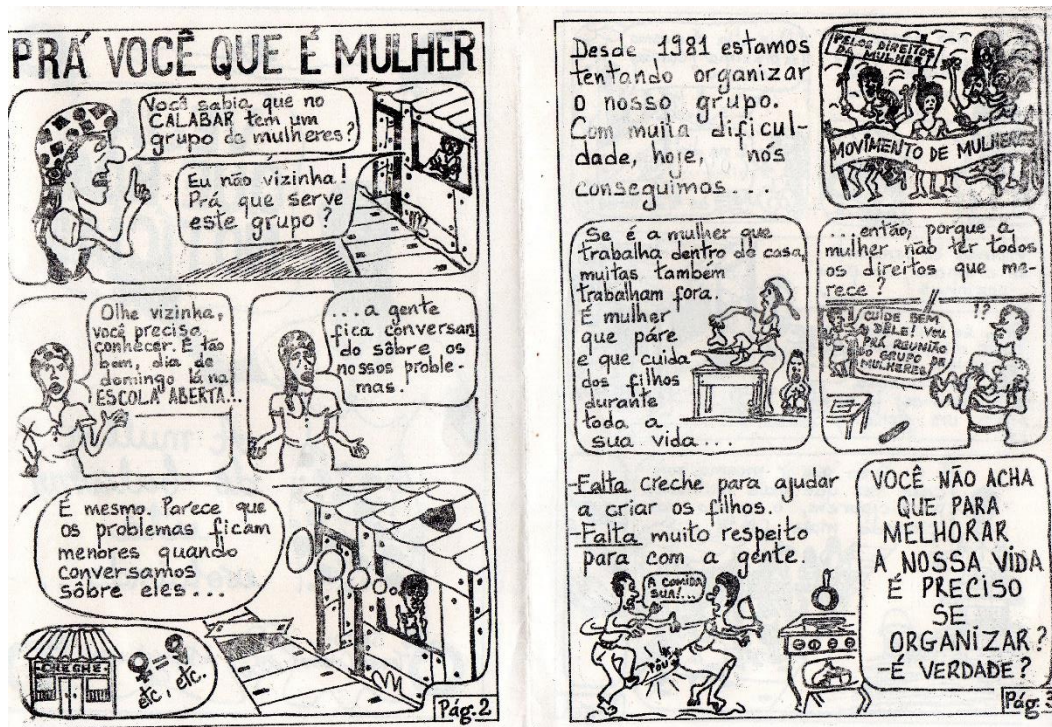 PRÁ VOCÊ QUE É MULHER
Você sabia que no
CALABAR tem um
grupo de mulheres?
Eu não vizinha!
Prá que serve
este grupo?
Olhe vizinha,
você precisa
conhecer. É tão
bom, dia de
domingo lá na
ESCOLA ABERTA!..
...a gente
fica conversan
do sôbre os
nossos proble-
mas.
É mesmo. Parece que
os problemas ficam
menores quando
conversamos
sôbre eles ...
CRECHE
♀=♂
etc, etc.
Pág.2
Desde 1981 estamos
tentando organizar
o nosso grupo.
Com muita dificul-
dade, hoje, nós
conseguimos...
PELOS DIREITOS
DA MULHER!
MOVIMENTO DE MULHERES
Se é a mulher que
trabalha dentro de casa,
muitas também
trabalham fora.
É mulher
que páre
e que cuida
dos filhos
durante
toda a
sua vida...
...então, porque a
mulher não ter todos
os direitos que me-
rece?
CUIDE BEM
DELE! VOU
PRÁ REUNIÃO
DO GRUPO DE
MULHERES!
!?
-Falta creche para ajudar
a criar os filhos.
-Falta muito respeito
para com a gente.
A COMIDA
SUA!...
PÔU
VOCÊ NÃO ACHA
QUE PARA
MELHORAR
A NOSSA VIDA
É PRECISO
SE
ORGANIZAR?
-É VERDADE?
Pág.3